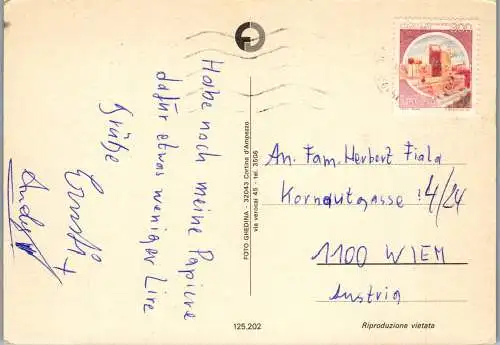 Habe noch meine Papiere
dafür etwas weniger Lire
Grüße
Andy
FOTO GHEDINA - 32043 Cortina d'Ampezzo
via verocai 45 - tel. 3606
300
An. Fam. Herbert Fiala
Korngutgasse 4/24
1100 WIEM
Austria
125.202
Riproduzione vietata